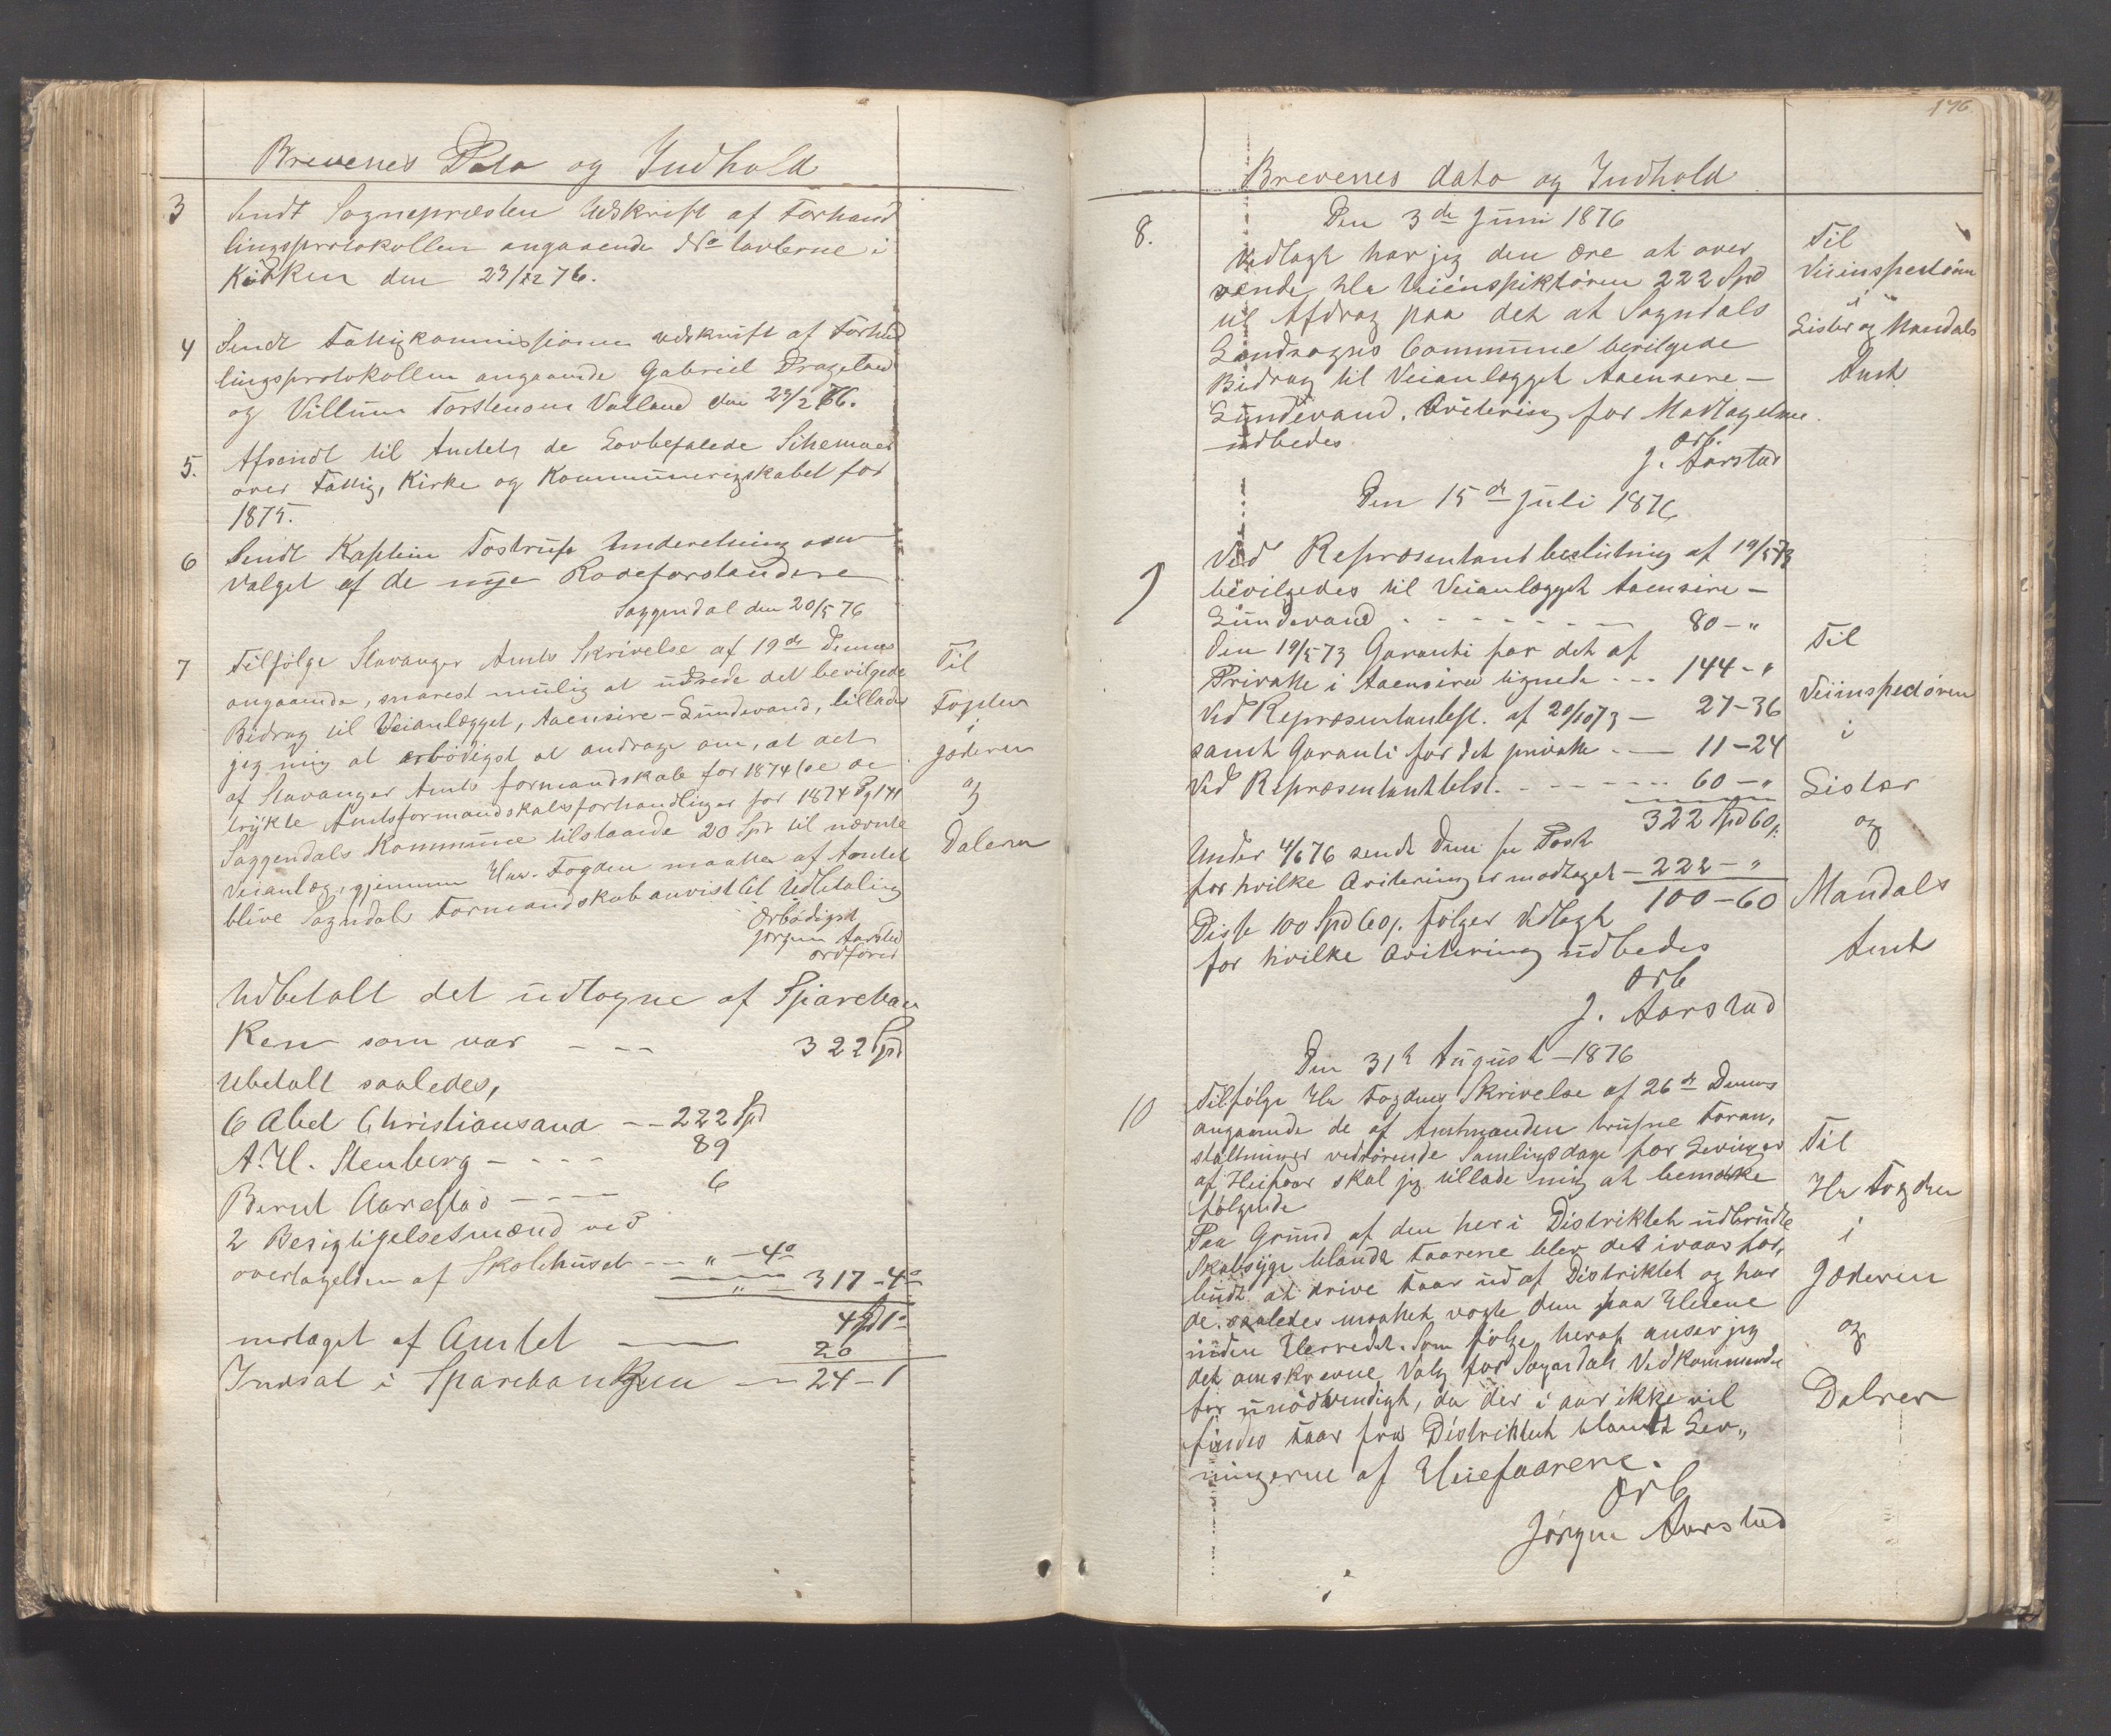 Brevenes Dato og Indhold
3 Sendt Sognepræsten Udskrift af Forhand
lingsprotokollen angaaende No tavlerne i
Kirken den 23/12 76.
4 Sendt Fattigkommissionen udskrift af Forhand
lingsprotokollen angaaende Gabriel Drageland
og Villum Torstensen Vatland den 23/2 76.
5. Afsendt til Amtet de Lovbefalede Schemaer
over Fattig, Kirke og Kommuneregnskabet for
1875.
6 Sendt Kaptein Tostrup Underetning om
Valget af de nye Rodeforstandere
Soggendal den 20/5 76
7 Tilfölge Stavanger Amts Skrivelse af 19de Dennes
angaaende, snarest mulig at udrede det bevilgede
Bidrag til Veianlægget, Aaensire-Lundevand, tillader
jeg mig at erbödigst at andrage om, at det
af Stavanger Amts formandskab for 1874 (se de
trykte Amtsformandskabsforhandlinger for 1874 Pg 141
Soggendals Kommune tilstaaede 20 Spd til nævnte
Veianlæg, gjennem Hrr. Fogden maatte af Amtet
blive Sogndals Formandskab anvist til Udbetaling
Ærbödigst
Jörgen Aarstad
ordförer
Til
Fogden
i
Jæderen
og
Dalerne
Udbetalt det udtagne af Spareban
ken som var - - - 322 Spd
Ubetalt saaledes,
C Abel Christiansand - - 222 Spd
A. H. Stenberg - - - - 89
Bernt Aarestad - - - - 6
2 Besigtigelsesmænd ved
overtagelsen af Skolehuset - - " - 4o
" - 317 - 4o
4 Spd 1o
modtaget af Amtet — 20
Indsat i Sparebanken — 24 - 1
176
Brevenes dato og Indhold
Den 3de Juni 1876
8. Vedlagt har jeg den ære at over
sende Hr Veiinspektören 222 Spd
til Afdrag paa det at Sogndals
Landsogns Commune bevilgede
Bidrag til Veianlægget Aaensire —
Lundevand. Qvitering for Modtagelsen
udbedes.
ærb.
J. Aarstad
Til
Veiinspectören
i
Lister og Mandals
Amt
Den 15de Juli 1876
9 Ved Repræsentantbeslutning af 19/5 73
bevilgedes til Veianlægget Aaensire —
Lundevand - - - - - - 80 - "
Den 19/5 73 Garanti for det af
Private i Aaensire tignede - - - 144 - "
Ved Repræsentantbesl. af 20/10 73 — 27-36
samt Garanti for det private - — 11-24
Ved Repræsentantbesl. - - - - - 60 - "
322 Spd 60 s
Under 4/6 76 sendt Dem pr Post
for hvilke Qvitering er modtaget — 222 - "
100-60
Disse 100 Spd 60 s. følger vedlagt
for hvilke Qvitering udbedes
ærb
J. Aarstad
Til
Veiinspectören
i
Lister
og
Mandals
Amt
Den 31te August - 1876
10 Tilfølge Hr Fogdens Skrivelse af 26de Dennes
angaaende de af Amtmanden trufne Foran,
staltninger vedrörende Samlingsdage for Levninger
af Heifaar skal jeg tillade mig at bemærke
følgende
Paa Grund af den her i Distriktet udbrudte
Skabsyge blandt Faarene blev det ivaar for,
budt at drive Faar ud af Distriktet og har
de saaledes maattet vogte dem paa Heiene
inden Herredet. Som følge heraf anser jeg
det omskrevne Valg for Sogndals Vedkommende
for unödvendigt, da der i aar ikke vil
findes Faar fra Distriktet blandt Lev„
ningerne af Heiefaarene.
Ærb
Jörgen Aarstad
Til
Hr Fogden
i
Jæderen
og
Dalerne